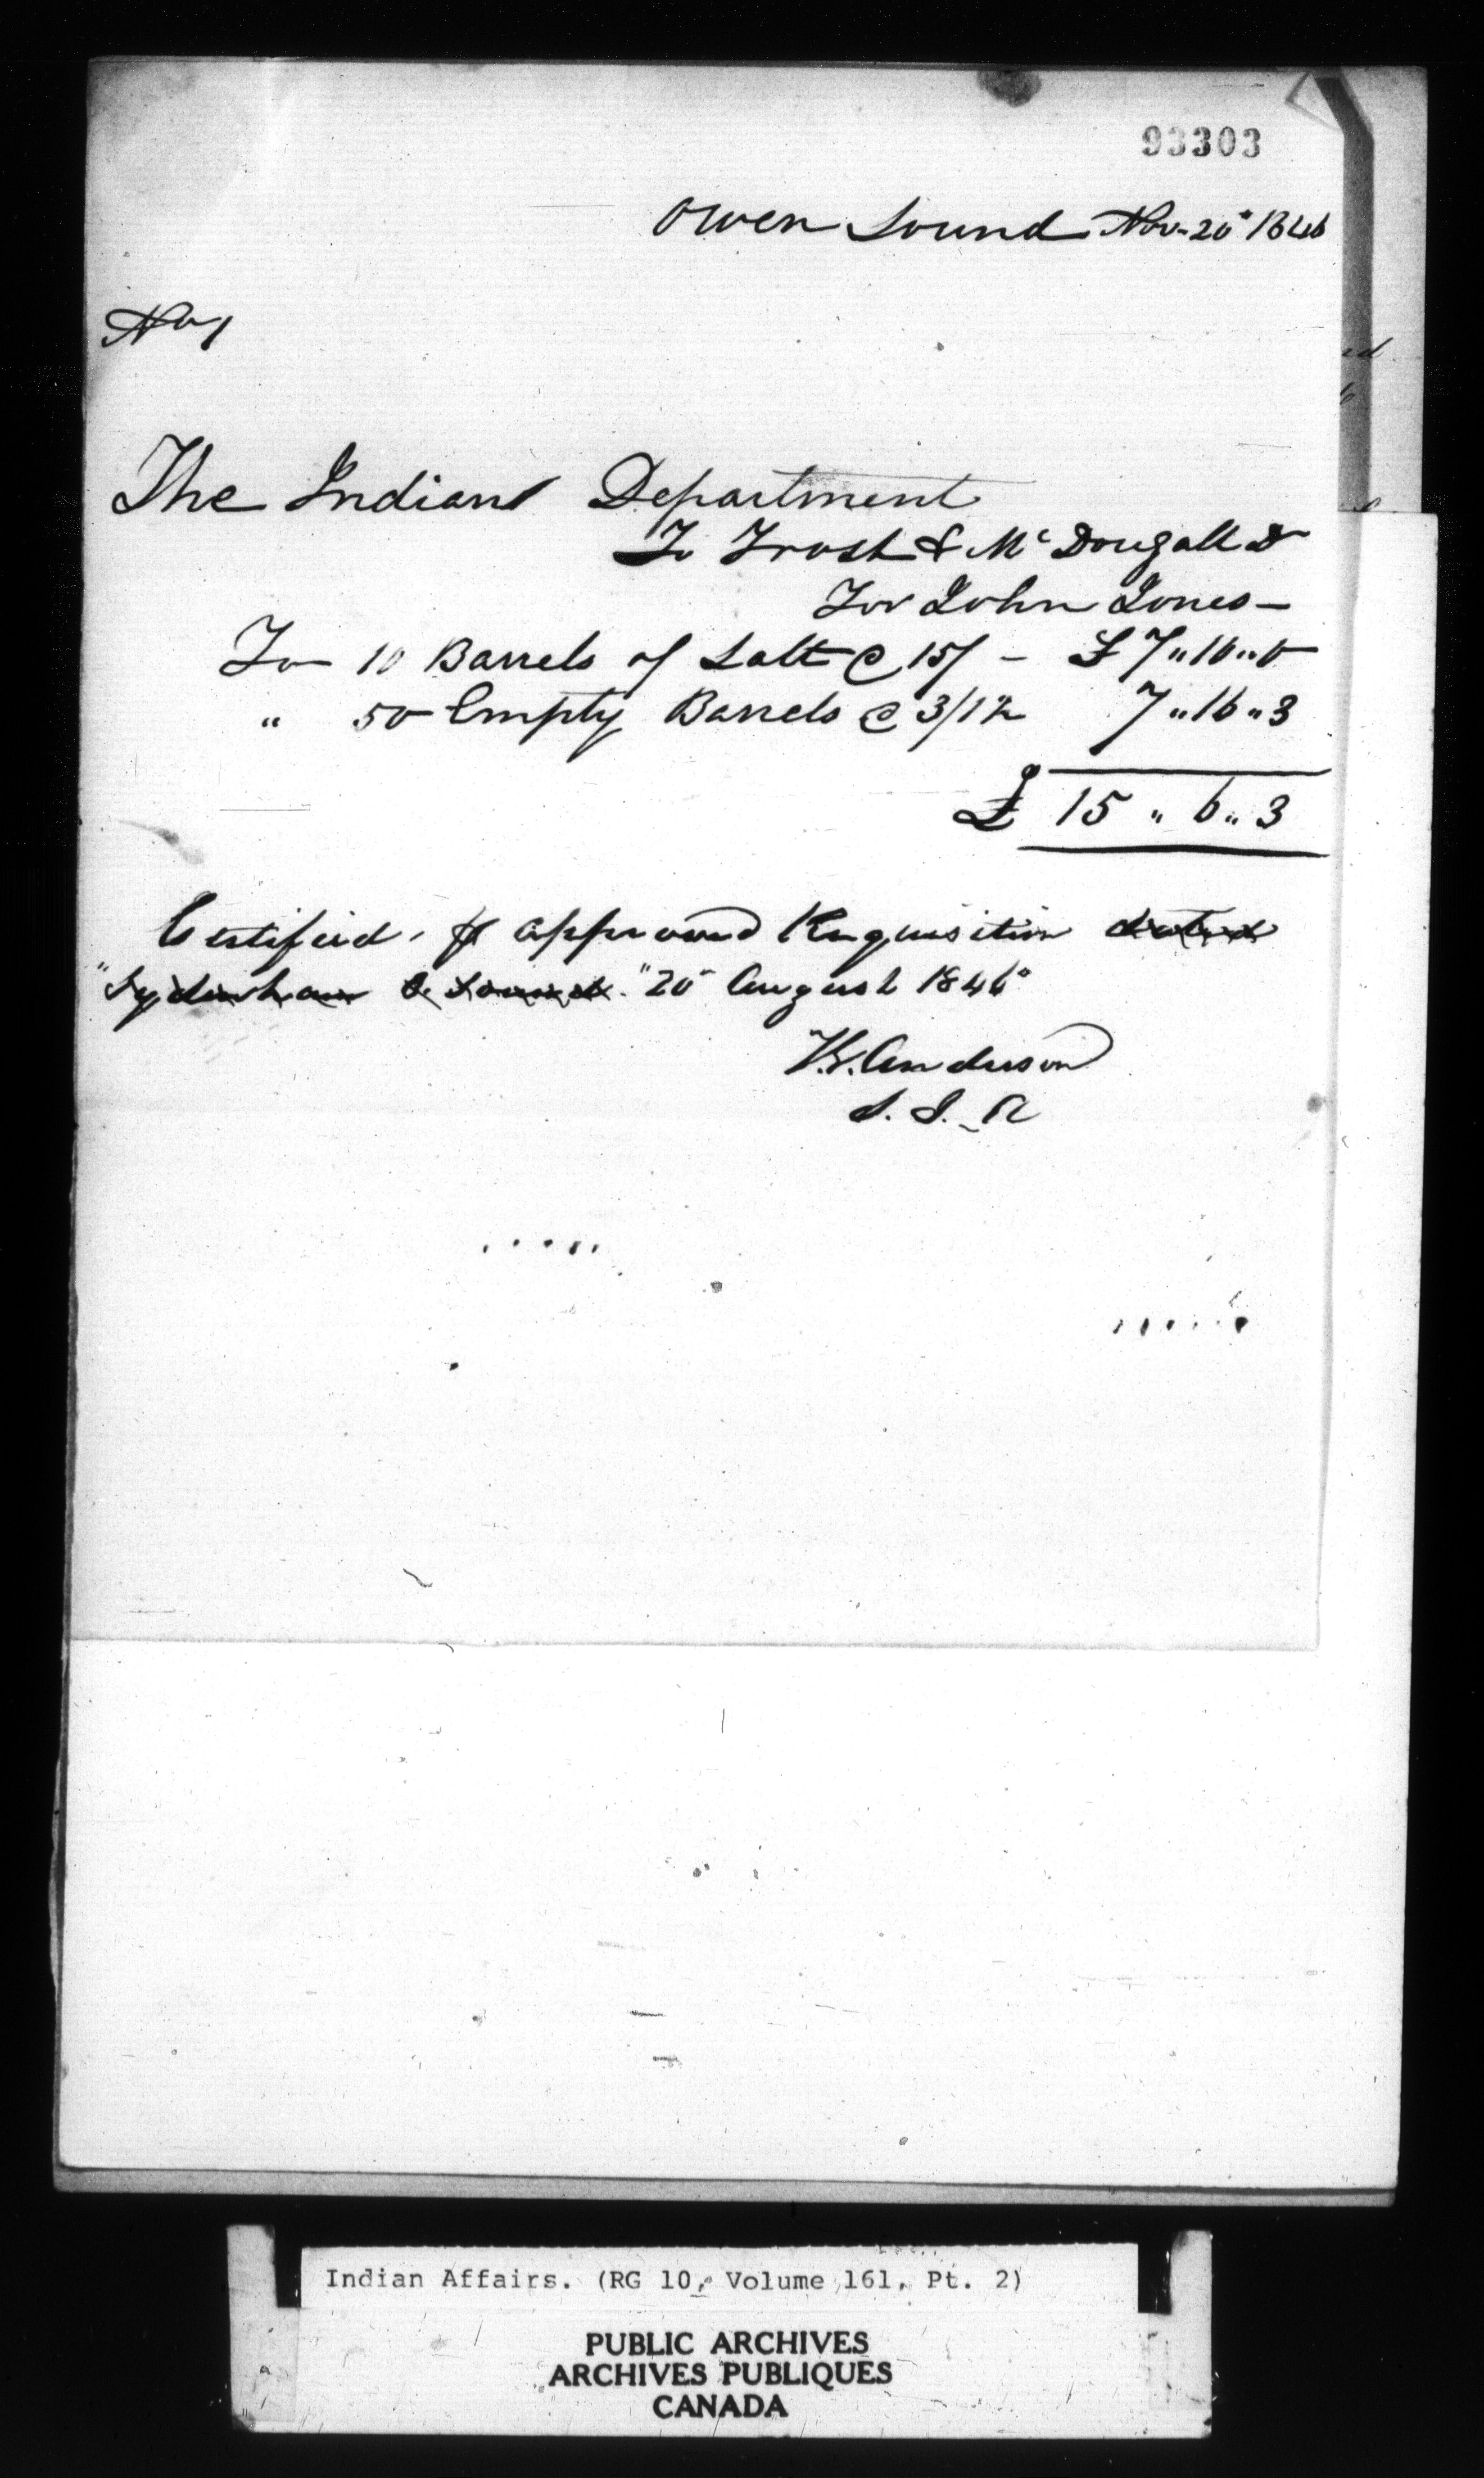 93303
Owen Sound Nov. 20° 1846
No 1
The Indian Department
To Frost & McDougall Dr
For John Jones —
To 10 Barrels of Salt @ 15/ — £ 7 „ 10 „ 0
„ 50 Empty Barrels @ 3/1½ 7 „ 16 „ 3
£ 15 „ 6 „ 3
Certified. pr approved Requisition dated
"Sydenham O. Sound." 20° August 1846°
T.G. Anderson
S. I. A
Indian Affairs. (RG 10, Volume 161, Pt. 2)
PUBLIC ARCHIVES
ARCHIVES PUBLIQUES
CANADA